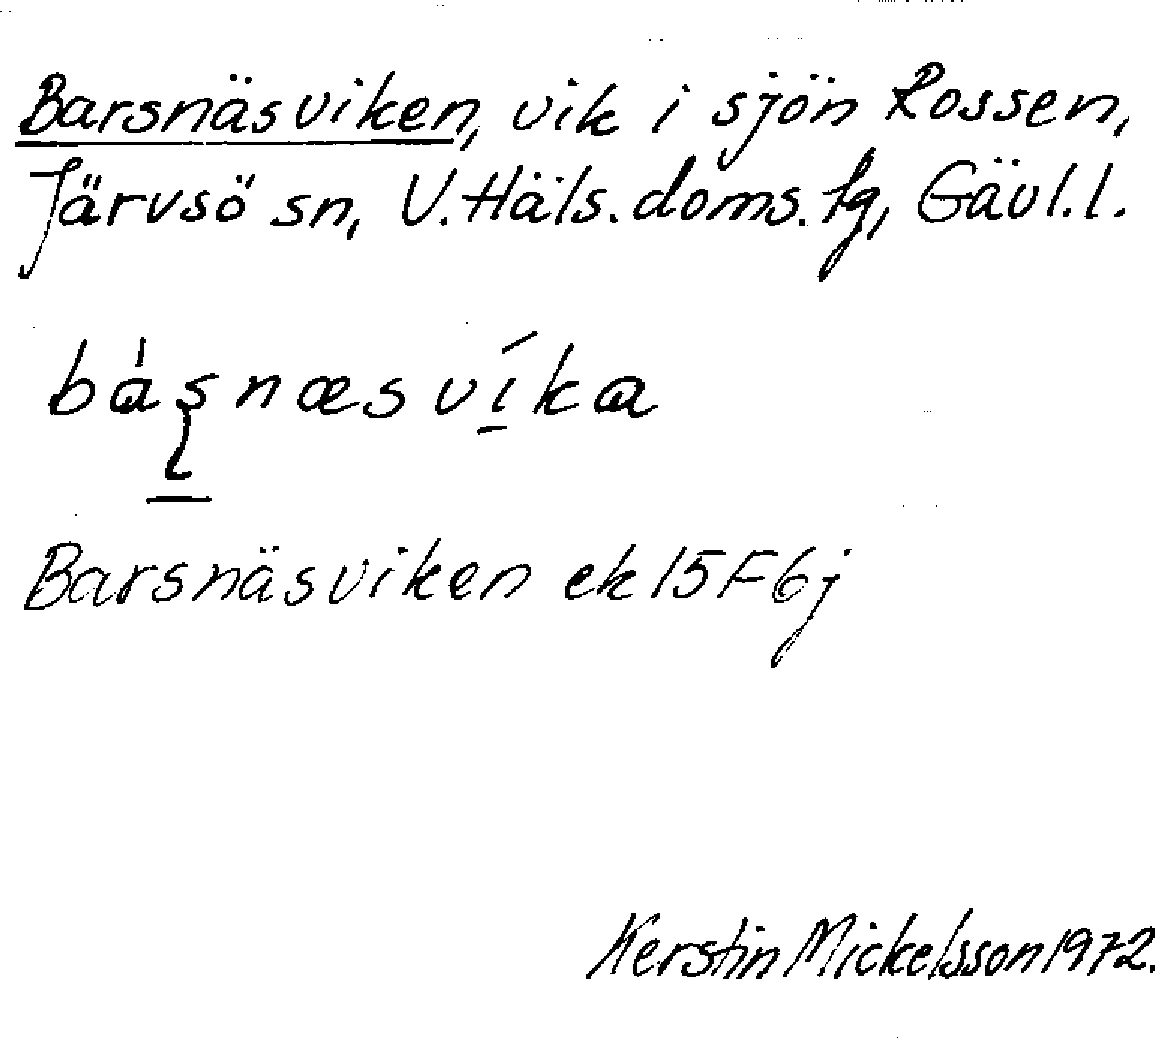 Barsnäsviken, vik i sjön Rossen,
Järvsö sn, V. Häls. doms. tg, Gävl. l.
bàʂnæsvíka
Barsnäsviken ek 15F6j
Kerstin Mickelsson 1972.